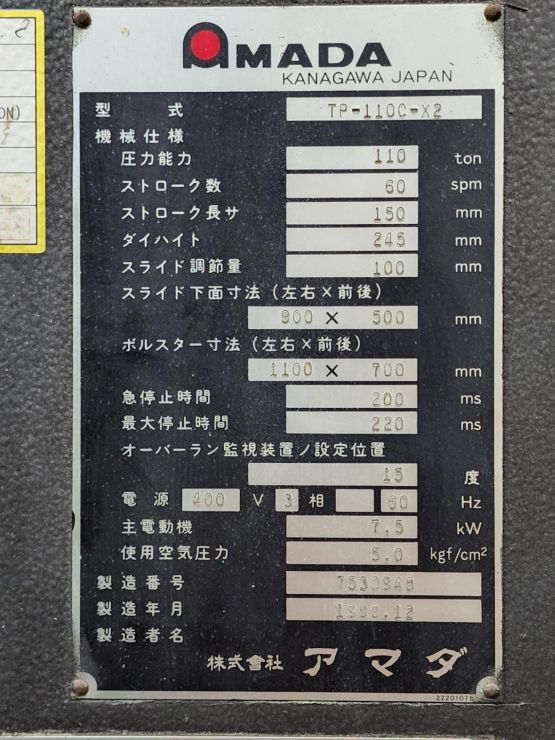 AMADA
KANAGAWA JAPAN
型式 TP-110C-X2
機械仕様
圧力能力 110 ton
ストローク数 60 spm
ストローク長サ 150 mm
ダイハイト 245 mm
スライド調節量 100 mm
スライド下面寸法(左右×前後)
900 × 500 mm
ボルスター寸法(左右×前後)
1100 × 700 mm
急停止時間 200 ms
最大停止時間 220 ms
オーバーラン監視装置ノ設定位置
15 度
電源 400 V 3 相 60 Hz
主電動機 7.5 kW
使用空気圧力 5.0 kgf/cm²
製造番号
製造年月
製造者名
株式會社 アマダ
22201076